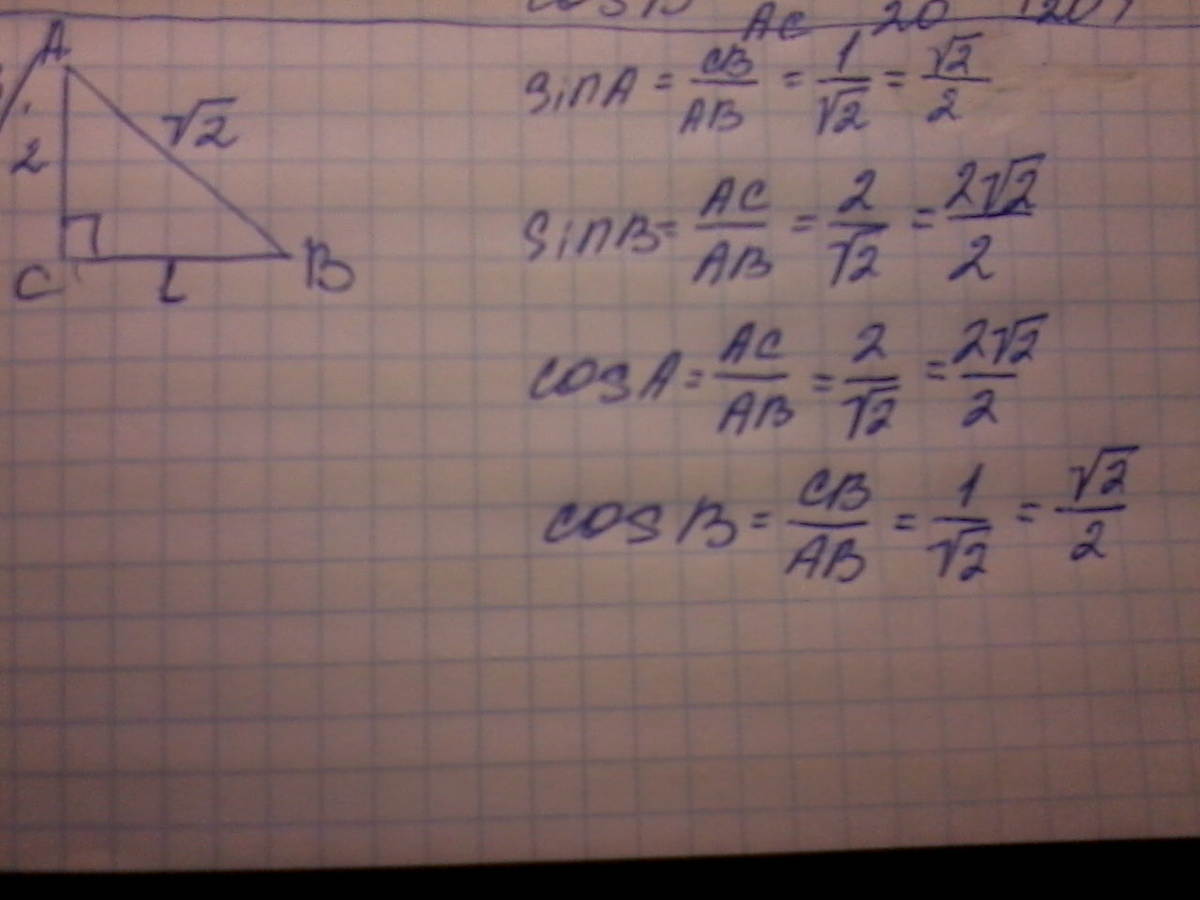 cos B
AC 20 (20)
A
√2
2
C 1 B
sin A = CB/AB = 1/√2 = √2/2
sin B = AC/AB = 2/√2 = 2√2/2
cos A = AC/AB = 2/√2 = 2√2/2
cos B = CB/AB = 1/√2 = √2/2